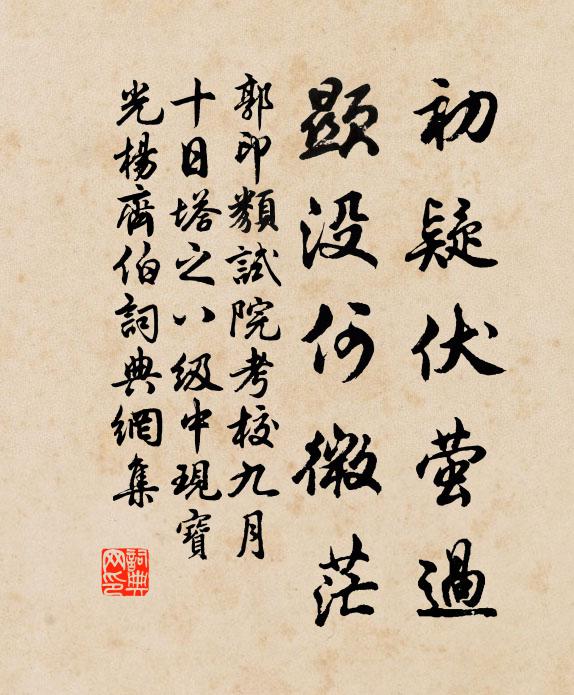 初疑伏萤過
顯没何微茫
郭印類試院考校九月
十日塔之八级中現寶
光楊齊伯詞典網集
詞典网印